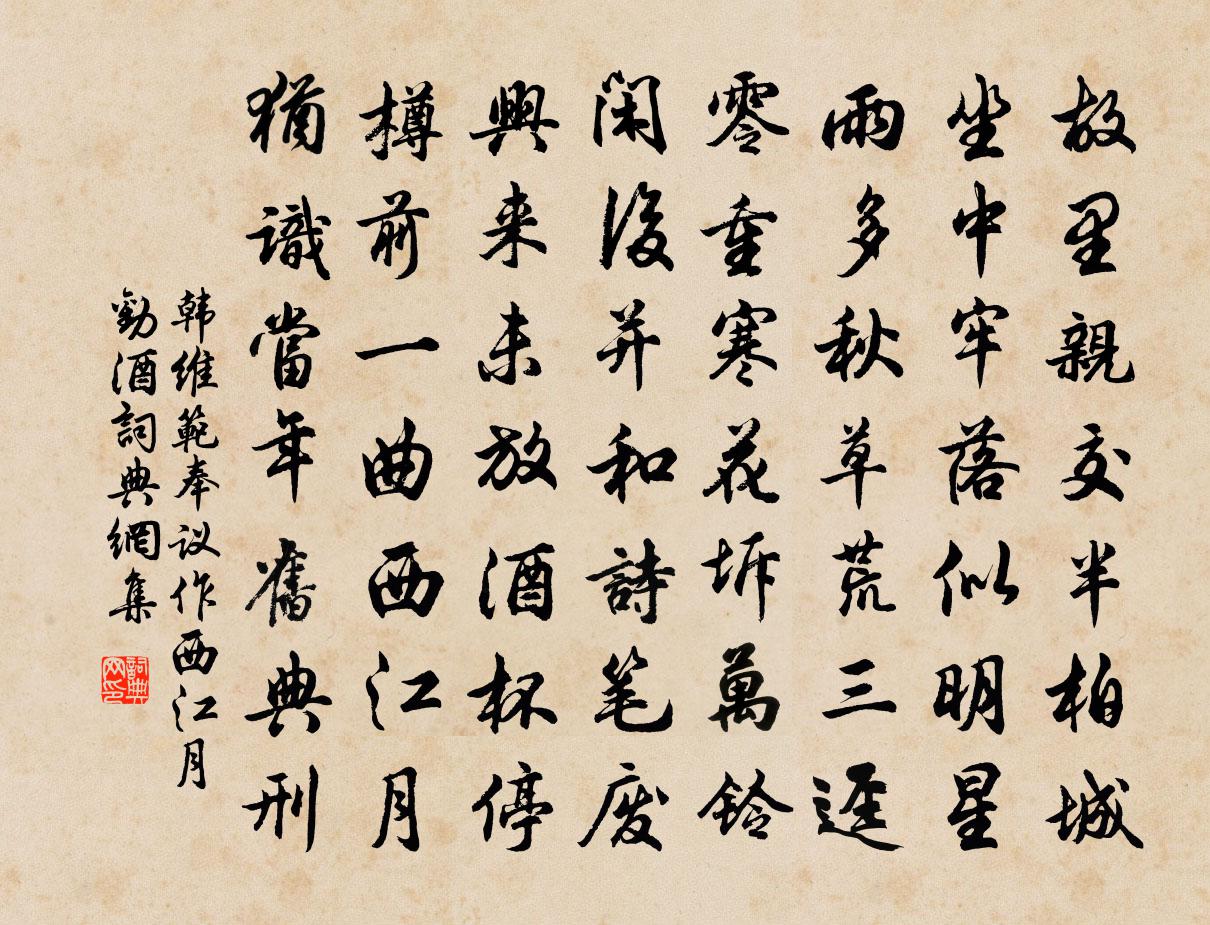 故里親交半柏城
坐中牢落似明星
雨多秋草荒三逕
露重寒花坼萬鈴
閑後并和詩笔廢
興来未放酒杯停
樽前一曲西江月
猶識當年舊典刑
韩維範奉议作西江月
勸酒詞典網集
詞典网印